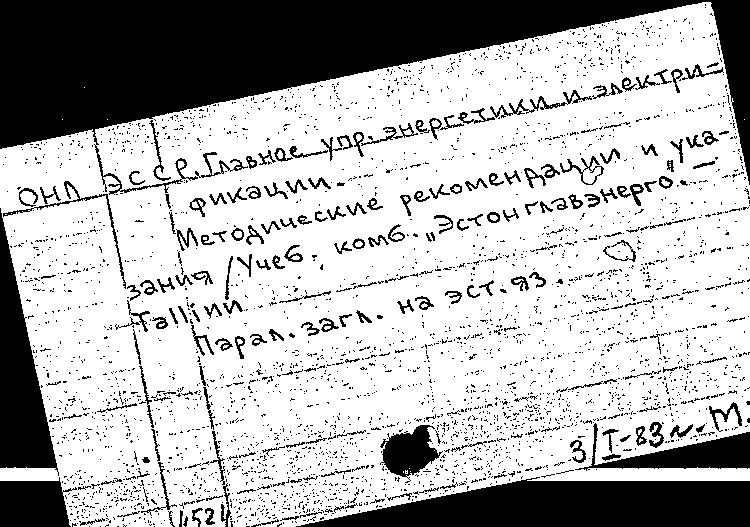 ОНЛ ЭССР. Главное упр. энергетики и электри-
фикации.
Методические рекомендации и ука-
зания / Учеб. комб. „Эстонглавэнерго". —
Tallinn
Парал. загл. на эст. яз.
3/I-83 г. М.
4521